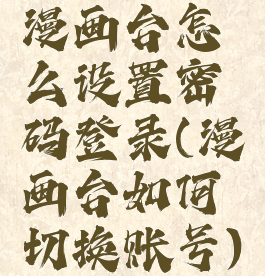 漫画台怎
么设置密
码登录(漫
画台如何
切换账号)